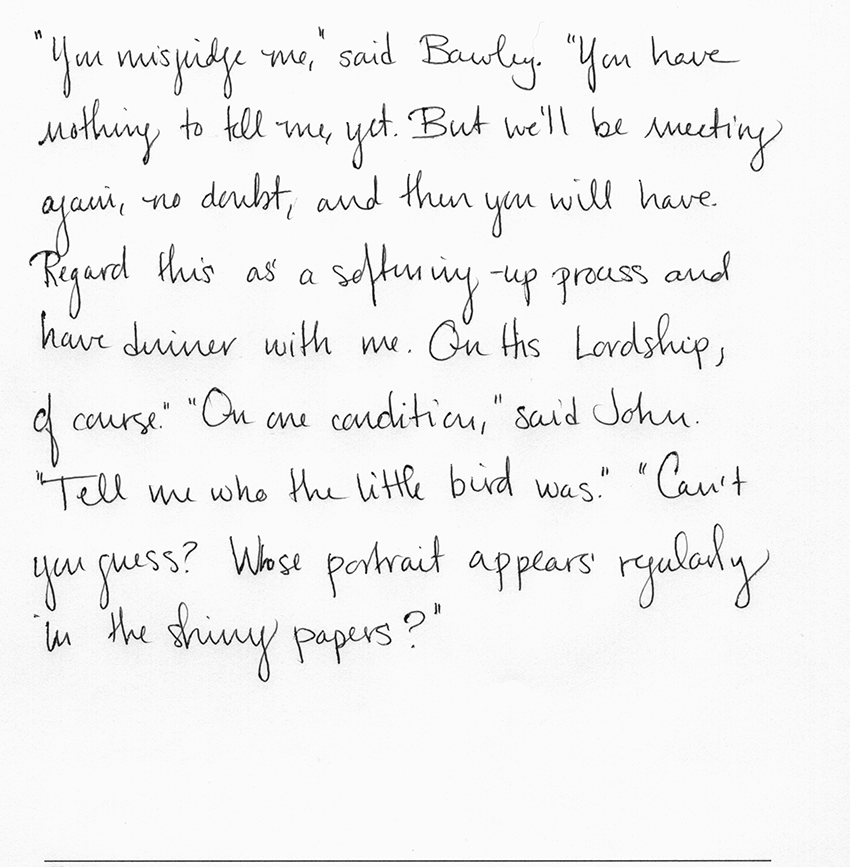 "You misjudge me," said Bawley. "You have
nothing to tell me, yet. But we'll be meeting
again, no doubt, and then you will have.
Regard this as a softening-up process and
have dinner with me. On this Lordship,
of course." "On one condition," said John.
"Tell me who the little bird was." "Can't
you guess? Whose portrait appears regularly
in the shiny papers?"